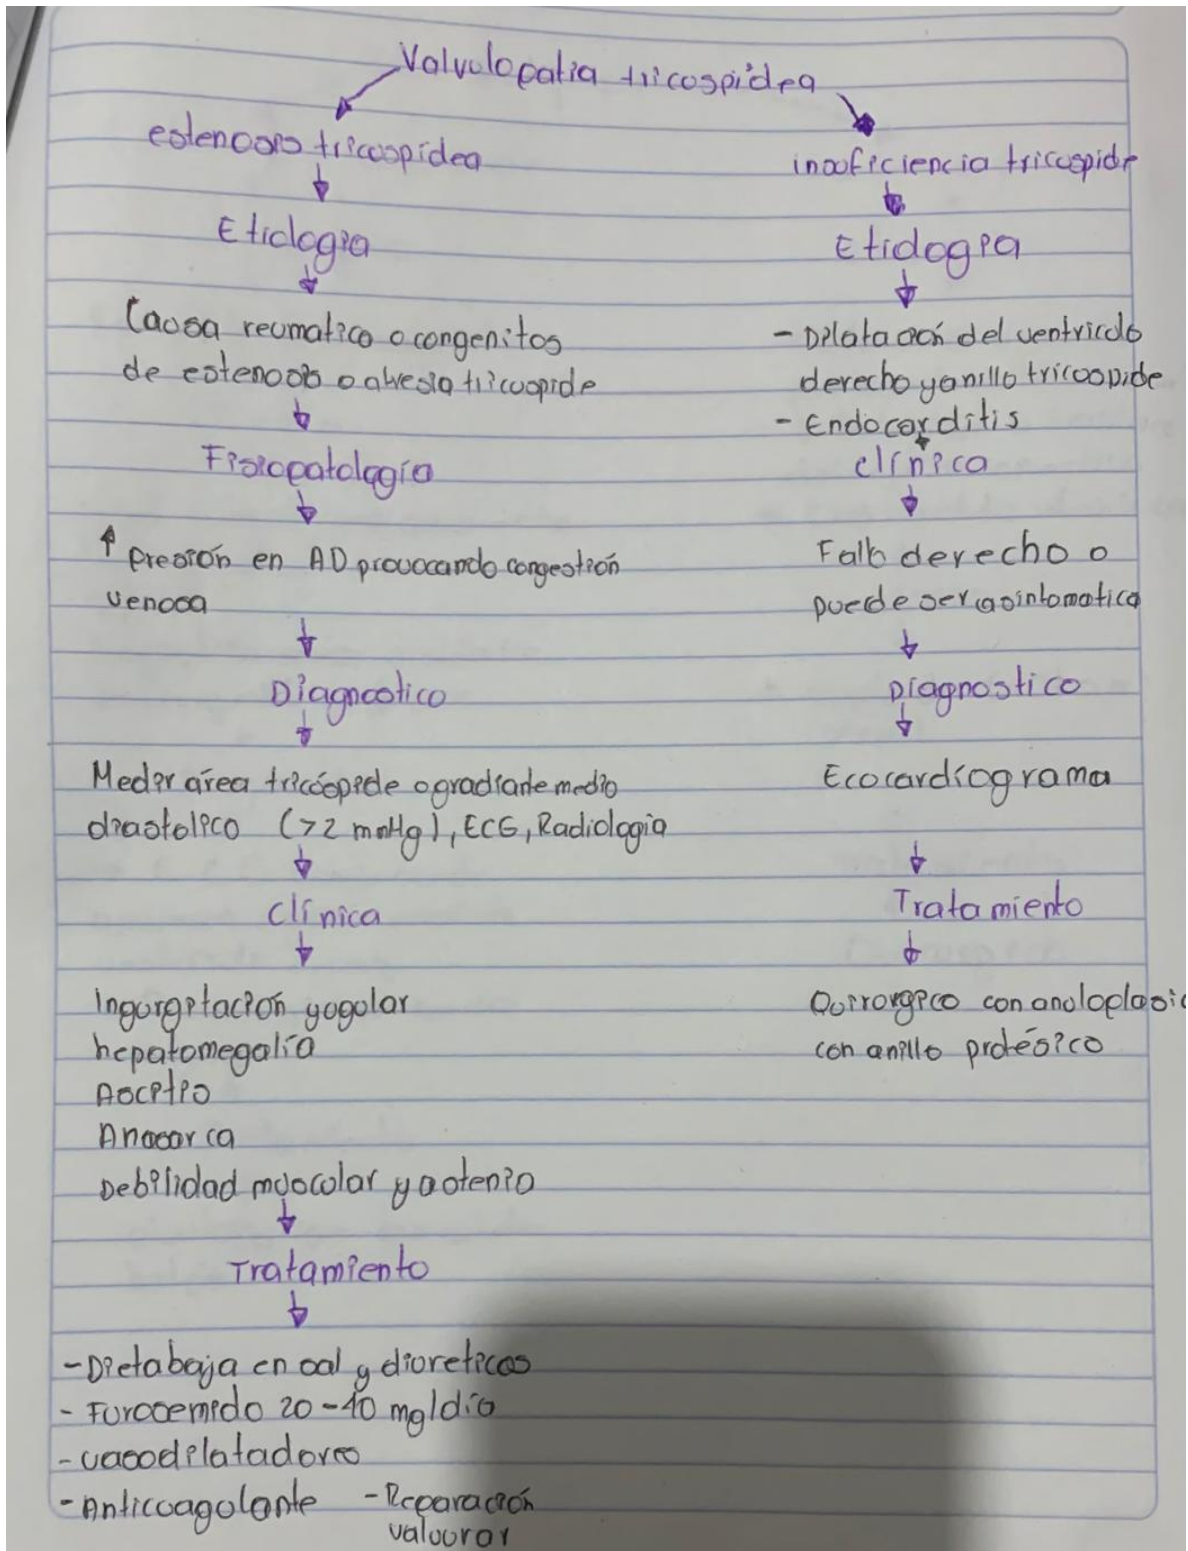 Valvulopatia tricospidea
estenosis tricuspidea
Etiologia
Causa reumatico o congenitos
de estenosis o atresia tricuspide
Fisiopatologia
↑ presión en AD provocando congestión
venosa
Diagnostico
Medir area tricúspide o gradiante medio
diastolico (>2 mmHg), ECG, Radiologia
Clínica
Ingurgitación yugular
hepatomegalia
Ascitis
Anasarca
Debilidad muscular y astenia
Tratamiento
- Dieta baja en sal y diureticos
- Furosemida 20-40 mg/día
- vasodilatadores
- Anticuagulante - Reparación
valvurar
insuficiencia tricuspide
Etiologia
- Dilatación del ventriculo
derecho y anillo tricuspide
- Endocarditis
clínica
Falla derecha o
puede ser asintomatica
Diagnostico
Ecocardiograma
Tratamiento
Quirurgico con anuloplasi
con anillo protésico